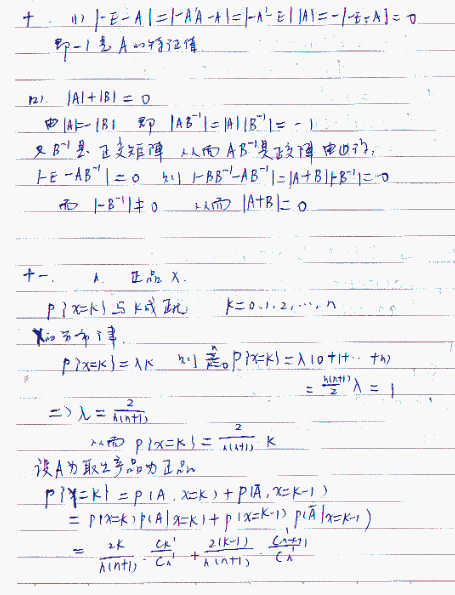 十. (1) |-E-A|=|-A'A-A|=|-A'-E||A|=-|-E-A|=0
即-1是A的特征值.
(2). |A|+|B|=0
由|A|=-|B| 即 |AB⁻¹|=|A||B⁻¹|=-1
又B⁻¹是正交矩阵 从而AB⁻¹是正交阵 由(1)得,
|-E-AB⁻¹|=0 则 |-BB⁻¹-AB⁻¹|=|A+B||-B⁻¹|=0
而 |-B⁻¹|≠0 从而|A+B|=0
十一. 正品X.
P{X=K}与K成正比 K=0.1.2,…,n
X的分布律
P{X=K}=λK 则 Σⁿₖ₌₀ P{X=K}=λ(0+1+…+n)
= n(n+1)/2 λ = 1
=> λ = 2/n(n+1)
从而 P{X=K} = 2/n(n+1) K
设A为取出产品为正品
P{Y=K} = P(A, X=K) + P(Ā, X=K-1)
= P(X=K)P(A|X=K) + P(X=K-1)P(Ā|X=K-1)
= 2K/n(n+1) · Cₖ¹/Cₙ¹ + 2(K-1)/n(n+1) · C¹ₙ₋ₖ₊₁/Cₙ¹